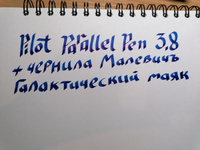 Pilot Parallel Pen 3.8
+ чернила Малевичъ
Галактический маяк